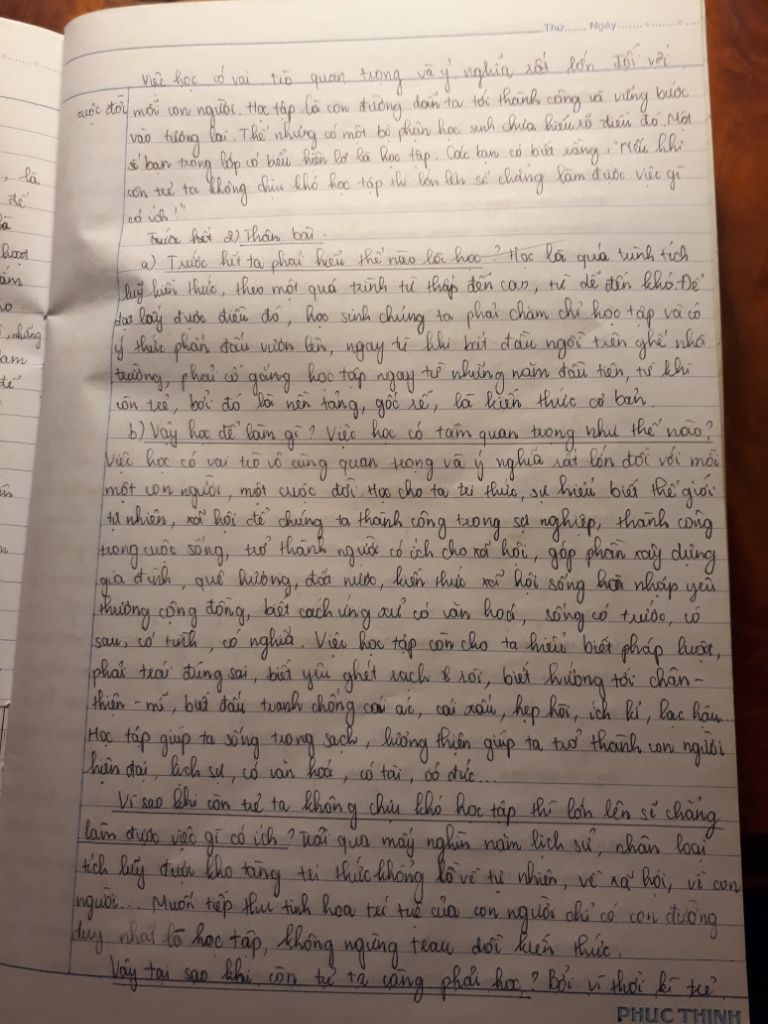 Thứ....... Ngày
Việc học có vai trò quan trọng và ý nghĩa rất lớn đối với
cuộc đời mỗi con người. Học tập là con đường dẫn ta tới thành công và vững bước
vào tương lai. Thế nhưng có một bộ phận học sinh chưa hiểu rõ điều đó. Một
số bạn trong lớp có biểu hiện lơ là học tập. Các bạn có biết rằng, "Nếu khi
còn trẻ ta không chịu khó học tập thì lớn lên sẽ chẳng làm được việc gì
có ích!"
Trước hết 2) Thân bài.
a) Trước hết ta phải hiểu thế nào là học? Học là quá trình tích
luỹ kiến thức, theo một quá trình từ thấp đến cao, từ dễ đến khó. Để
luỹ được điều đó, học sinh chúng ta phải chăm chỉ học tập và có
ý thức phấn đấu vươn lên, ngay từ khi bắt đầu ngồi trên ghế nhà
trường, phải cố gắng học tập ngay từ những năm đầu tiên, từ khi
còn trẻ, bởi đó là nền tảng, gốc rễ, là kiến thức cơ bản.
b) Vậy học để làm gì? Việc học có tầm quan trọng như thế nào?
Việc học có vai trò vô cùng quan trọng và ý nghĩa rất lớn đối với mỗi
một con người, một cuộc đời. Học cho ta tri thức, sự hiểu biết thế giới
tự nhiên, xã hội để chúng ta thành công trong sự nghiệp, thành công
trong cuộc sống, trở thành người có ích cho xã hội, góp phần xây dựng
gia đình, quê hương, đất nước, kiến thức xã hội sống hoà nhập yêu
thương cộng đồng, biết cách ứng xử có văn hoá, sống có trước, có
sau, có tình, có nghĩa. Việc học tập còn cho ta hiểu biết pháp luật,
phải trái đúng sai, biết yêu ghét rạch ròi, biết hướng tới chân -
thiện - mĩ, biết đấu tranh chống cái ác, cái xấu, hẹp hòi, ích kỉ, lạc hậu...
Học tập giúp ta sống trong sạch, lương thiện giúp ta trở thành con người
hiện đại, lịch sự, có văn hoá, có tài, có đức...
Vì sao khi còn trẻ ta không chịu khó học tập thì lớn lên sẽ chẳng
làm được việc gì có ích? Trải qua mấy nghìn năm lịch sử, nhân loại
tích luỹ được kho tàng tri thức khổng lồ về tự nhiên, về xã hội, về con
người... Muốn tiếp thu tinh hoa trí tuệ của con người chỉ có con đường
duy nhất là học tập, không ngừng trau dồi kiến thức.
Vậy tại sao khi còn trẻ ta càng phải học? Bởi vì thời kì trẻ
PHUC THINH